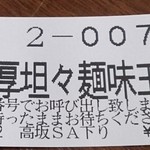 2-007
厚坦々麺味玉
番号でお呼び出し致しま
持ったままお待ちくださ
2 高坂SA下り